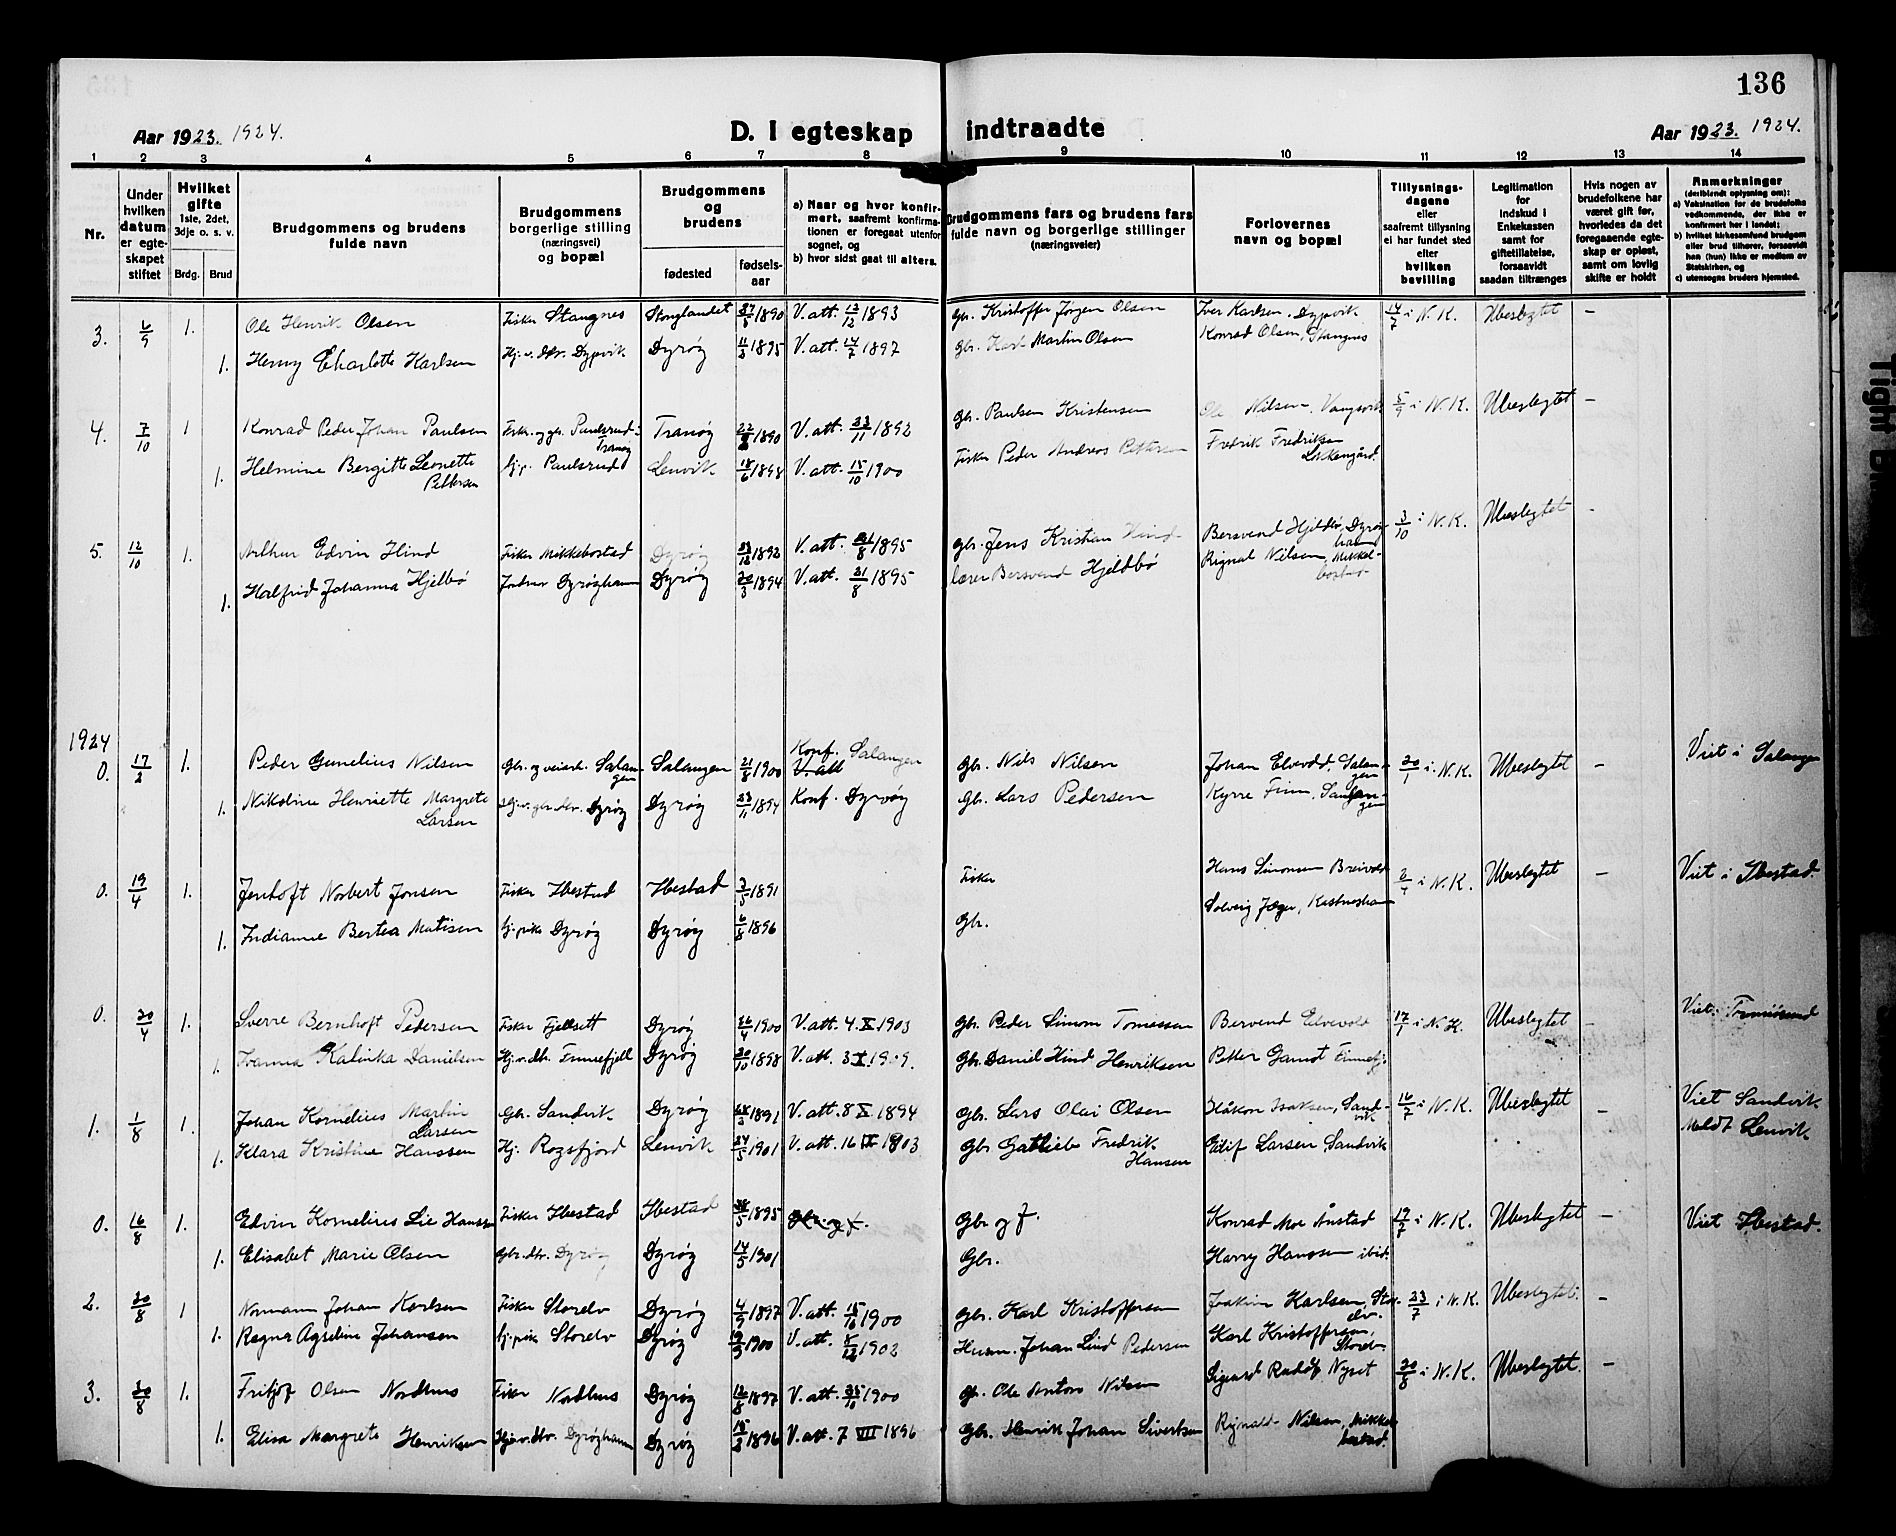 136
Aar 1923. 1924. D. I egteskap indtraadte Aar 1923. 1924.
1 2 3 4 5 6 7 8 9 10 11 12 13 14
Nr.
Under hvilken datum er egteskapet stiftet
Hvilket gifte 1ste, 2det, 3dje o. s. v.
Brdg. Brud
Brudgommens og brudens fulde navn
Brudgommens borgerlige stilling (næringsvei) og bopæl
Brudgommens og brudens
fødested
fødselsaar
a) Naar og hvor konfirmert, saafremt konfirmationen er foregaat utenfor sognet, og
b) hvor sidst gaat til alters.
Brudgommens fars og brudens fars fulde navn og borgerlige stillinger (næringsveier)
Forlovernes navn og bopæl
Tillysningsdagene eller saafremt tillysning ei har fundet sted efter hvilken bevilling
Legitimation for indskud i Enkekassen samt for giftetillatelse, forsaavidt saadan tiltrænges
Hvis nogen av brudefolkene har været gift før, hvorledes da det foregaaende egteskap er opløst, samt om lovlig skifte er holdt
Anmerkninger (deriblandt oplysning om):
a) Vaksination for de brudefolks vedkommende, der ikke er konfirmert her i landet;
b) hvilket kirkesamfund brudgom eller brud tilhører, forsaavidt han (hun) ikke er medlem av Statskirken, og
c) utensogns bruders hjemsted.
3. 6/9 1. Ole Henrik Olsen Fisker Stangnes Stonglandet 27/8 1890 V. att. 12/12 1893 Gbr. Kristoffer Jørgen Olsen Iver Karlsen, Dypvik 14/7 i N. K. Ubeslegtet –
1. Henny Charlotte Karlsen Hj. v. dtr. Dypvik Dyrøy 11/3 1895 V. att. 14/7 1897 Gbr. Karl Martin Olsen Konrad Olsen, Stangnes
4. 7/10 1 Konrad Peder Johan Paulsen Fisk. og gbr. Paulsrud i Tranøy Tranøy 22/8 1890 V. att. 23/11 1892 Gbr. Paulsen Kristensen Ole Nilsen, Vangsvik 5/9 i N. K. Ubeslegtet –
1. Helmine Bergitte Leonette Pettersen Hj.p. Paulsrud Lenvik 18/6 1898 V. att. 15/10 1900 Fisker Peder Andreas Pettersen Fredrik Fredriksen
5. 12/10 1. Arthur Edvin Hind Fisker Mikkebostad Dyrøy 23/12 1892 V. att. 21/8 1895 Gbr. Jens Kristian Hind Bersvend Hjeldbø, Dyrøyhamn 3/10 i N. K. Ubeslegtet –
1. Halfrid Johanna Hjelbø Dyrøyhamn Dyrøy 20/3 1894 V. att. 21/8 1895 lærer Bersvend Hjeldbø Rignal Nilsen Mikkelbostad
1924
0. 17/2 1. Peder Gunelius Nilsen Gbr. og veiarb. Salangen Salangen 21/8 1900 Konf. Salangen V. att Gbr. Nils Nilsen Johan Elvevold, Salangen 20/1 i N. K. Ubeslegtet – Viet i Salangen
1. Nikoline Henriette Margrete Larsen Hj. v. gbr. dtr. Dyrøy Dyrøy 23/11 1894 Konf. Dyrøy Gbr. Lars Pedersen Kyrre Finn, Salangen
0. 19/4 1. Jenhoft Norbert Jensen Fisker Ibestad Ibestad 3/5 1891 Fisker Hans Simonsen Breivold 2/4 i N. K. Ubeslegtet – Viet i Ibestad
1. Indianne Bertea Matisen Hj. pike Dyrøy Dyrøy 6/8 1896 Gbr. Solveig Jæger,
0. 20/4 1. Sverre Bernhoft Pedersen Fisker Fjellsett Dyrøy 26/4 1900 V. att. 4. X 1903 Gbr. Peder Simon Tomassen Bersvend Elvevold 17/1 i N. K. Ubeslegtet –
1. Ivanna Katinka Danielsen Hj. v. dtr. Finnefjell Dyrøy 20/10 1898 Gbr. Daniel Hind Henriksen Petter Gamst Finnefj.
1. 1/8 1. Johan Kornelius Martin Larsen Gbr. Sandvik Dyrøy 28/3 1891 V. att. 8 X. 1894 Gbr. Lars Olai Olsen Håkon Isaksen, Sandvik 16/7 i N. K. Ubeslegtet – Viet Sandvik
1. Klara Kristine Hanssen Hj. Rogsfjord Lenvik 24/5 1901 V. att. 16 1903 Gbr. Gotlieb Fredrik Hansen Edif Larsen Sandvik Meldt Lenvik
0. 16/8 1. Edvin Kornelius Lie Hanssen Fisker Ibestad Ibestad 28/5 1895 Gbr. og f. Gbr og f. Konrad Moe Ånstad 19/7 i N. K. Ubeslegtet – Viet Ibestad.
1. Elisabet Marie Olsen Gbr. dtr. Dyrøy Dyrøy 14/5 1901 Gbr. Harry Hanssen ibid.
2. 30/8 1 Normann Johan Karlsen Fisker Storelv Dyrøy 4/9 1897 V. att. 15/10 1900 Gbr. Karl Kristoffersen Joakim Karlsen, Storelv. 23/7 i N. K. Ubeslegtet. –
1. Ragna Agseline Johansen Hj. pike Storelv Dyrøy 19/9 1900 V. att. 8/12 1902 Husm. Johan Lind Pedersen Karl Kristoffersen, Storelv
3. 30/8 1. Fritjof Olsen Nordhus Fisker Nordhus Dyrøy 12/8 1897 V. att. 25/10 1900 Gbr. Ole Anton Nilsen Sigurd Rudolf Nyset 20/8 i N. K. Ubeslegtet. –
1. Elisa Margrete Henriksen Hj. v. dtr. Dyrøyhamn Dyrøy 15/2 1896 V. att. 7 VII 1896 Gbr. Henrik Johan Sivertsen Rignald Nilsen, Mikkebostad.